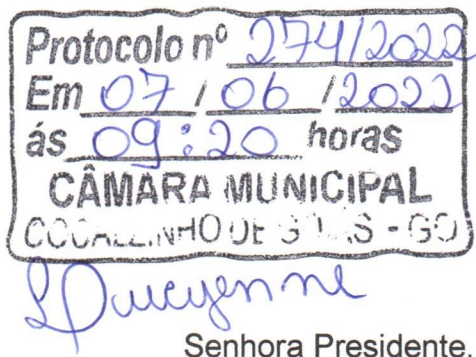 Protocolo nº 274/2022
Em 07 / 06 / 2022
ás 09:20 horas
CÂMARA MUNICIPAL
COCALZINHO DE GOIÁS - GO
Senhora Presidente,